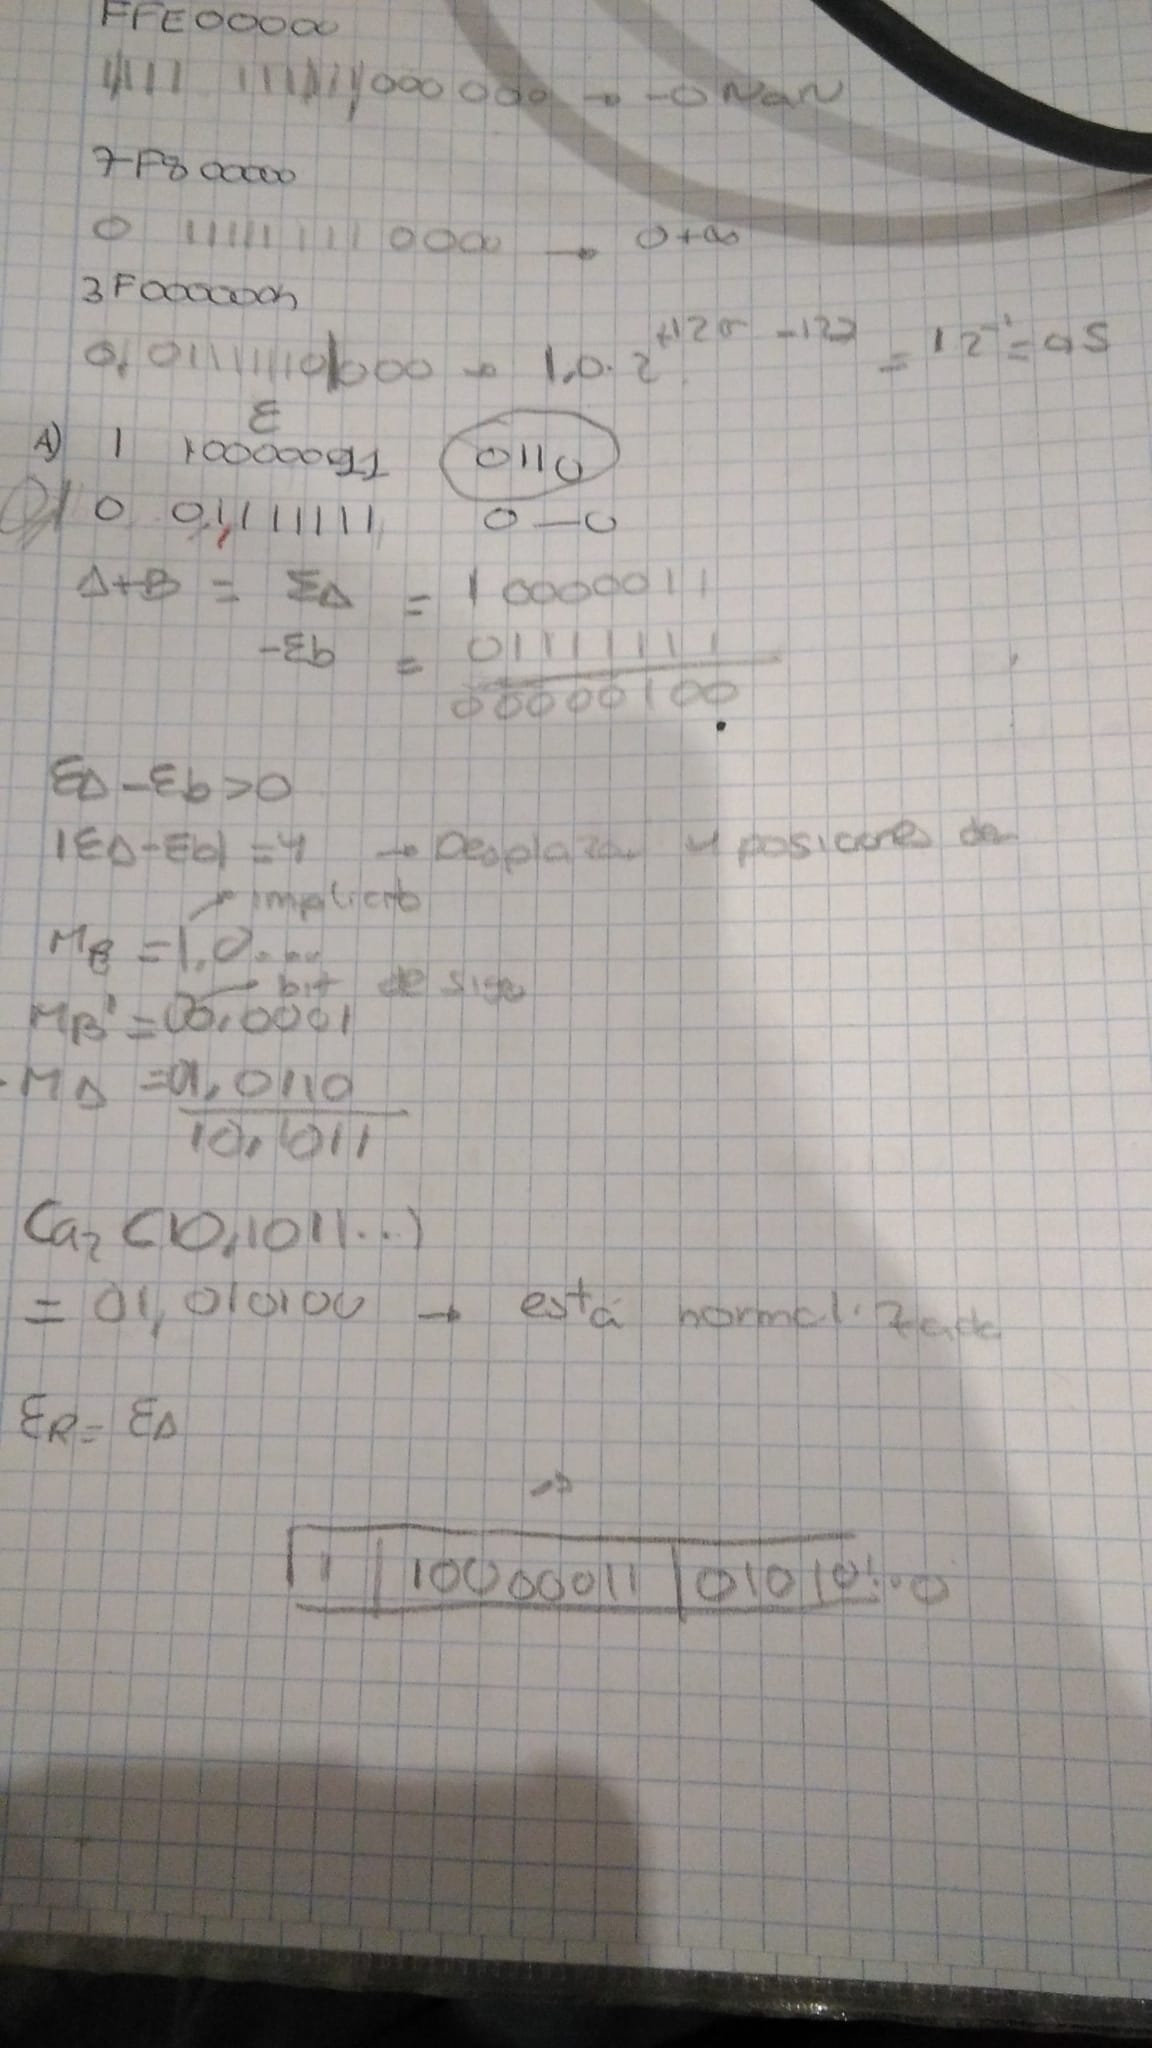 FFE00000
11111 111111,000 000 → -0 NaN
7F800000
0 11111111 000 → 0+∞
3F000000h
0,01111110|000 → 1,0·2 = 12⁻¹=05
E
A) 1 10000011 0110
0 01111111 0—0
A+B = EA = 10000011
-Eb = 01111111
00000100
EA-Eb>0
|EA-Eb|=4 → Desplazar 4 posiciones
implicito
MB =1,0....
bit de signo
MB'=00,0001
-MA =01,0110
10,1011
Ca2 (10,1011..)
= 01,010100 → está normalizada
ER= EA
→
1|10000011|01010...0